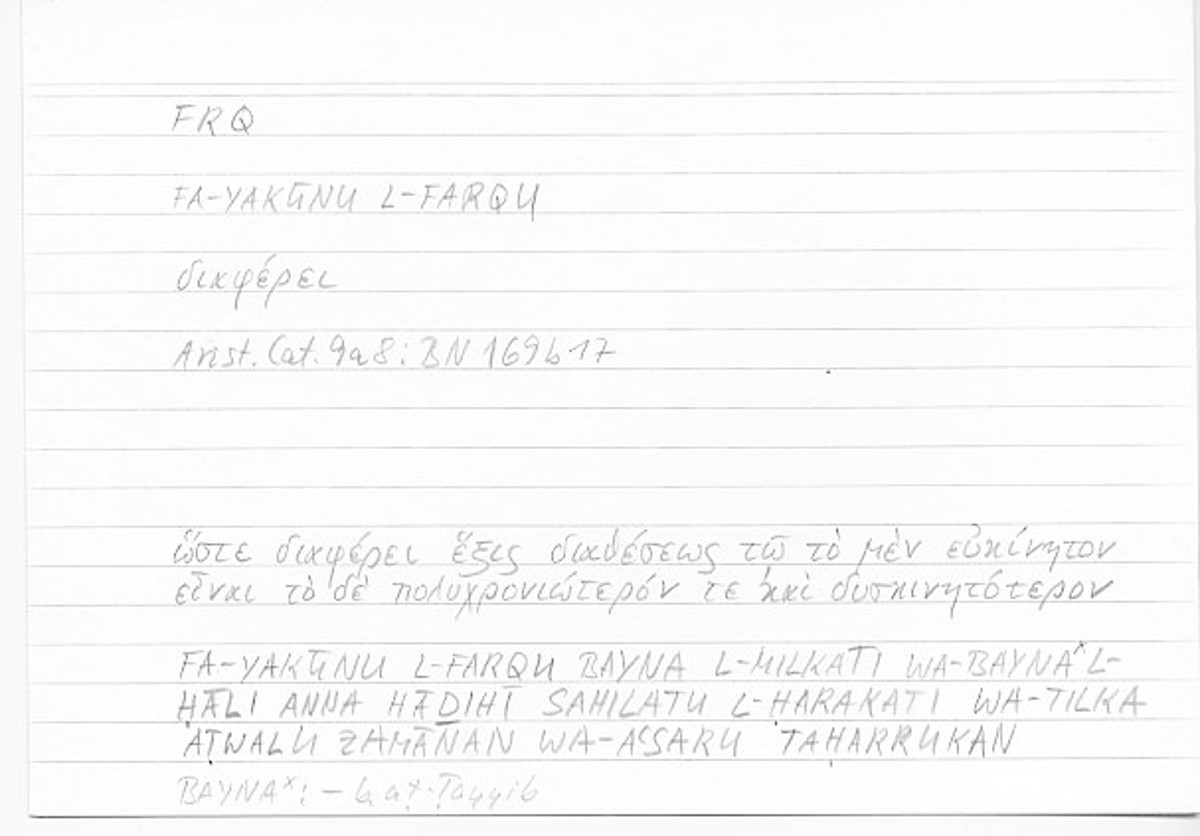 FRQ
FA-YAKŪNU L-FARQU
διαφέρει
Arist. Cat. 9a8: BN 169b17
ὥστε διαφέρει ἕξις διαθέσεως τῷ τὸ μὲν εὐκίνητον
εἶναι τὸ δὲ πολυχρονιώτερόν τε καὶ δυσκινητότερον
FA-YAKŪNU L-FARQU BAYNA L-MILKATI WA-BAYNAˣ L-
ḤĀLI ANNA HĀḎIHĪ SAHILATU L-ḤARAKATI WA-TILKA
AṬWALU ZAMĀNAN WA-AʿSARU TAḤARRUKAN
BAYNAˣ: – b. aṭ-Ṭayyib